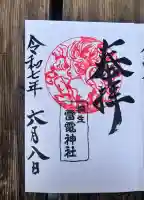 奉拝
雷電神社
令和七年
六月八日